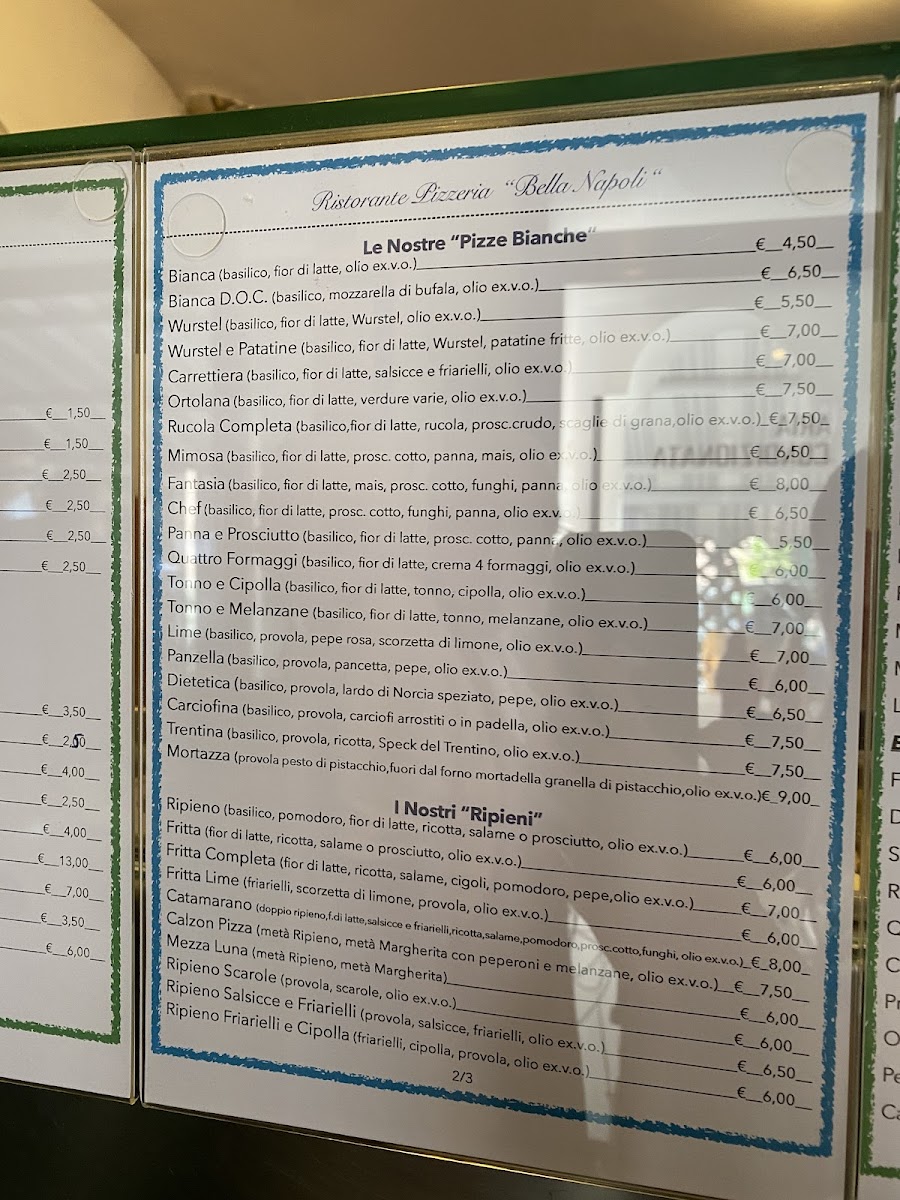 €__1,50__
€__1,50__
€__2,50__
€__2,50__
€__2,50__
€__2,50__
€__3,50__
€__2,50__
€__4,00__
€__2,50__
€__4,00__
€__13,00__
€__7,00__
€__3,50__
€__6,00__
Ristorante Pizzeria “Bella Napoli“
Le Nostre “Pizze Bianche”
Bianca (basilico, fior di latte, olio ex.v.o.) €__4,50__
Bianca D.O.C. (basilico, mozzarella di bufala, olio ex.v.o.) €__6,50__
Wurstel (basilico, fior di latte, Wurstel, olio ex.v.o.) €__5,50__
Wurstel e Patatine (basilico, fior di latte, Wurstel, patatine fritte, olio ex.v.o.) €__7,00__
Carrettiera (basilico, fior di latte, salsicce e friarielli, olio ex.v.o.) €__7,00__
Ortolana (basilico, fior di latte, verdure varie, olio ex.v.o.) €__7,50__
Rucola Completa (basilico,fior di latte, rucola, prosc.crudo, scaglie di grana,olio ex.v.o.)_€_7,50_
Mimosa (basilico, fior di latte, prosc. cotto, panna, mais, olio ex.v.o.) €__6,50__
Fantasia (basilico, fior di latte, mais, prosc. cotto, funghi, panna, olio ex.v.o.) €__8,00__
Chef (basilico, fior di latte, prosc. cotto, funghi, panna, olio ex.v.o.) €__6,50__
Panna e Prosciutto (basilico, fior di latte, prosc. cotto, panna, olio ex.v.o.) €__5,50__
Quattro Formaggi (basilico, fior di latte, crema 4 formaggi, olio ex.v.o.) €__6,00__
Tonno e Cipolla (basilico, fior di latte, tonno, cipolla, olio ex.v.o.) €__6,00__
Tonno e Melanzane (basilico, fior di latte, tonno, melanzane, olio ex.v.o.) €__7,00__
Lime (basilico, provola, pepe rosa, scorzetta di limone, olio ex.v.o.) €__7,00__
Panzella (basilico, provola, pancetta, pepe, olio ex.v.o.) €__6,00__
Dietetica (basilico, provola, lardo di Norcia speziato, pepe, olio ex.v.o.) €__6,50__
Carciofina (basilico, provola, carciofi arrostiti o in padella, olio ex.v.o.) €__7,50__
Trentina (basilico, provola, ricotta, Speck del Trentino, olio ex.v.o.) €__7,50__
Mortazza (provola pesto di pistacchio,fuori dal forno mortadella granella di pistacchio,olio ex.v.o.)€_9,00_
I Nostri “Ripieni”
Ripieno (basilico, pomodoro, fior di latte, ricotta, salame o prosciutto, olio ex.v.o.) €__6,00__
Fritta (fior di latte, ricotta, salame o prosciutto, olio ex.v.o.) €__6,00__
Fritta Completa (fior di latte, ricotta, salame, cigoli, pomodoro, pepe,olio ex.v.o.) €__7,00__
Fritta Lime (friarielli, scorzetta di limone, provola, olio ex.v.o.) €__6,00__
Catamarano (doppio ripieno,f.di latte,salsicce e friarielli,ricotta,salame,pomodoro,prosc.cotto,funghi, olio ex.v.o.)_€_8,00_
Calzon Pizza (metà Ripieno, metà Margherita con peperoni e melanzane, olio ex.v.o.) €__7,50__
Mezza Luna (metà Ripieno, metà Margherita) €__6,00__
Ripieno Scarole (provola, scarole, olio ex.v.o.) €__6,00__
Ripieno Salsicce e Friarielli (provola, salsicce, friarielli, olio ex.v.o.) €__6,50__
Ripieno Friarielli e Cipolla (friarielli, cipolla, provola, olio ex.v.o.) €__6,00__
2/3